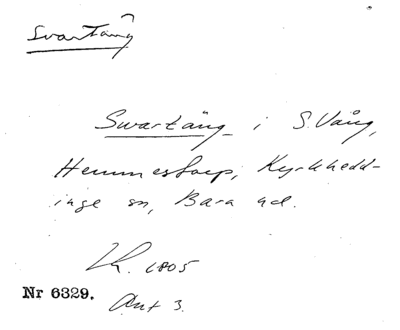 Svartäng
Swartäng i S. Vång,
Hemmestorp, Kyrkhedd-
inge sn, Bara hd.
1805
Nr 6329. Akt 3.